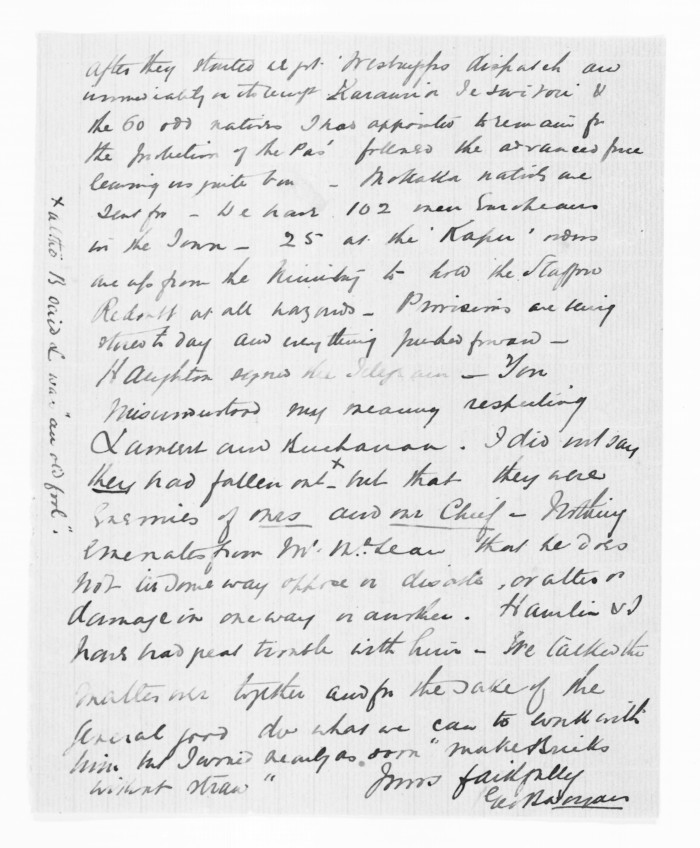 After they started we got Westrupps dispatch and
immediately on its receipt Karauria &
the 60 odd natives I had appointed to remain for
the protection of the Pa's followed the advanced force
leaving us quite bare - Mohaka natives are
sent for - We have 102 men Europeans
in the Town - 25 at the 'Kapu' orders
are up from the Ministry to hold the Stafford
Redoubt at all hazards - Provisions are being
stored to day and everything pushed forward -
Haughton signed the Telegram - You
misunderstood my meaning respecting
Lambert and Buchanan. I did not say
they had fallen out x - but that they were
Enemies of ours and our Chief - Nothing
emenates from Mr. McLean that he does
not in some way oppose or dislike, or alter or
damage in one way or another. Hamlin & I
have had great trouble with him - We talked the
matter over together and for the sake of the
general good do what we can to work with
him but I would nearly as soon "make Bricks
without straw"
Yours faithfully
x altho' B said L was "an old fool".